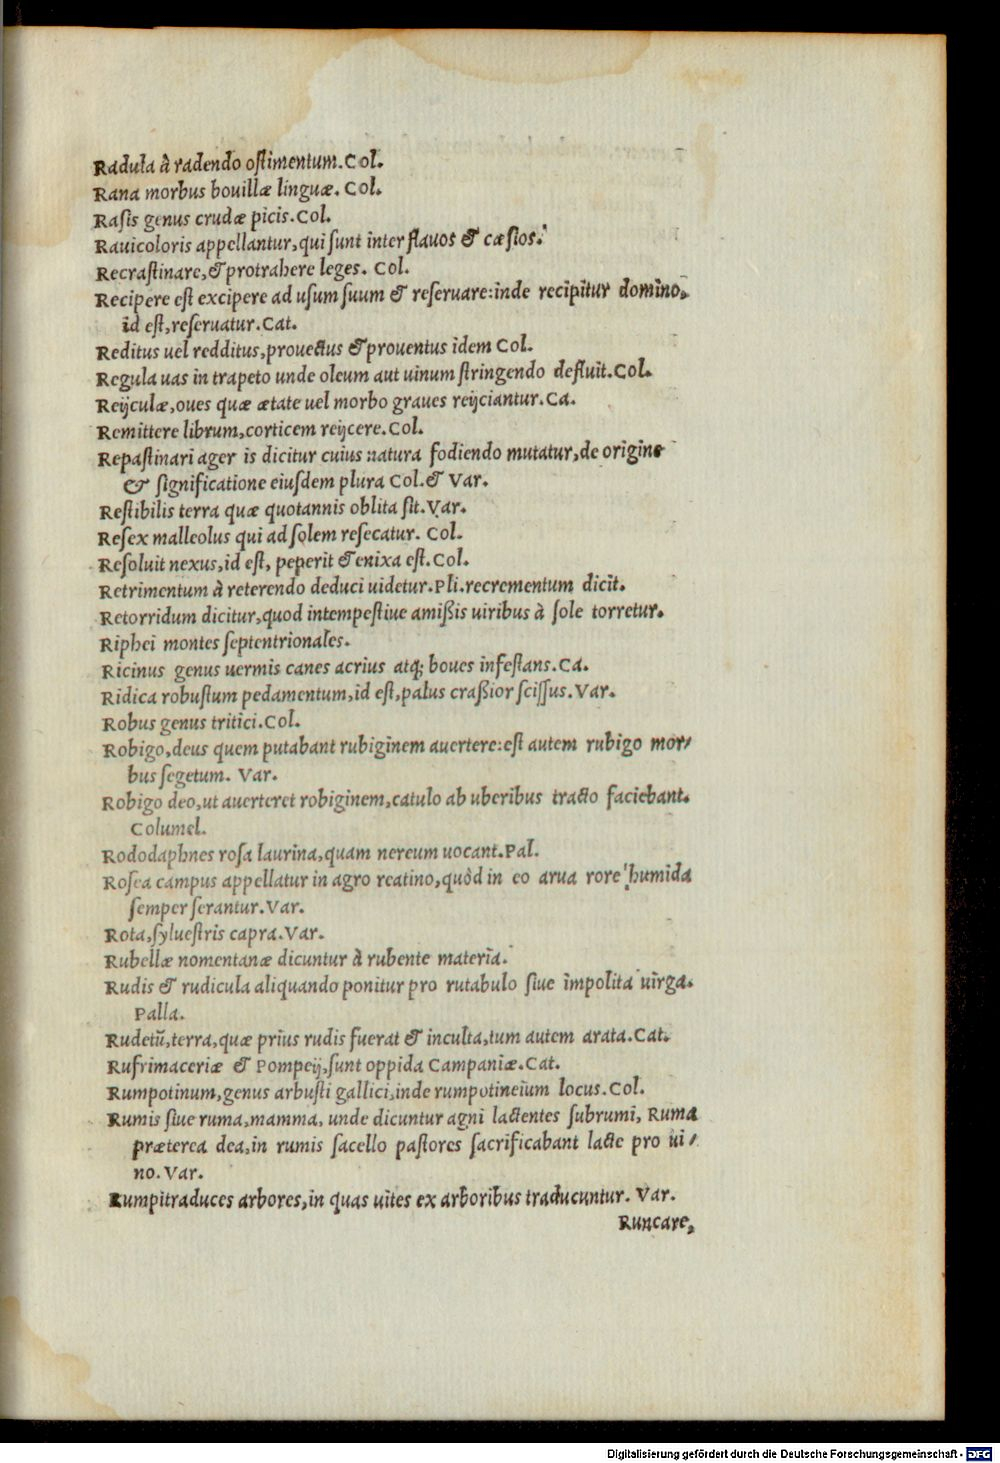 Radula à radendo ostimentum.Col.
Rana morbus bouillæ linguæ. Col.
Rasis genus crudæ picis.Col.
Rauicoloris appellantur,qui sunt inter flauos & cæsios.
Recrastinare,& protrahere leges. Col.
Recipere est excipere ad usum suum & reseruare:inde recipitur domino,
id est,reseruatur.Cat.
Reditus uel redditus,prouectus & prouentus idem Col.
Regula uas in trapeto unde oleum aut uinum stringendo defluit.Col.
Reijculæ,oues quæ ætate uel morbo graues reijciantur.Ca.
Remittere librum,corticem reijcere.Col.
Repastinari ager is dicitur cuius natura fodiendo mutatur,de origine
& significatione eiusdem plura Col.& Var.
Restibilis terra quæ quotannis oblita sit.Var.
Resex malleolus qui ad solem resecatur. Col.
Resoluit nexus,id est, peperit & enixa est.Col.
Retrimentum à reterendo deduci uidetur.Pli.recrementum dicit.
Retorridum dicitur,quod intempestiue amißis uiribus à sole torretur.
Riphei montes septentrionales.
Ricinus genus uermis canes acrius atq; boues infestans.Ca.
Ridica robustum pedamentum,id est,palus craßior scissus.Var.
Robus genus tritici.Col.
Robigo,deus quem putabant rubiginem auertere:est autem rubigo mor/
bus segetum. Var.
Robigo deo,ut auerteret robiginem,catulo ab uberibus tracto faciebant.
Columel.
Rododaphnes rosa laurina,quam nereum uocant.Pal.
Rosea campus appellatur in agro reatino,quòd in eo arua rore humida
semper serantur.Var.
Rota,syluestris capra.Var.
Rubellæ nomentanæ dicuntur à rubente materia.
Rudis & rudicula aliquando ponitur pro rutabulo siue impolita uirga.
Palla.
Rudetū,terra,quæ prius rudis fuerat & inculta,tum autem arata.Cat.
Rufrimaceriæ & Pompeij,sunt oppida Campaniæ.Cat.
Rumpotinum,genus arbusti gallici,inde rumpotineium locus.Col.
Rumis siue ruma,mamma, unde dicuntur agni lactentes subrumi, Ruma
præterea dea,in rumis sacello pastores sacrificabant lacte pro ui/
no.Var.
Rumpitraduces arbores,in quas uites ex arboribus traducuntur. Var.
Runcare,
Digitalisierung gefördert durch die Deutsche Forschungsgemeinschaft - DFG